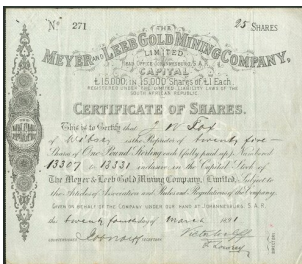 No 271
25 SHARES
THE
MEYER AND LEEB GOLD MINING COMPANY,
LIMITED.
HEAD OFFICE JOHANNESBURG, S.A.R.
CAPITAL
£15,000: IN 15,000 Shares of £1 Each.
REGISTERED UNDER THE LIMITED LIABILITY LAWS OF THE
SOUTH AFRICAN REPUBLIC
CERTIFICATE OF SHARES.
This is to Certify that
of is the Proprietor of twenty five
Shares of One Pound Sterling each (fully paid up), Numbered
13307 to 13331 inclusive in the Capital Stock of
The Meyer & Leeb Gold Mining Company, Limited, Subject to
the Articles of Association and Rules and Regulations of the Company.
GIVEN ON BEHALF OF THE COMPANY UNDER OUR HAND AT JOHANNESBURG, S.A.R.
the twenty fourth day of March 1891
SECRETARY
DIRECTORS